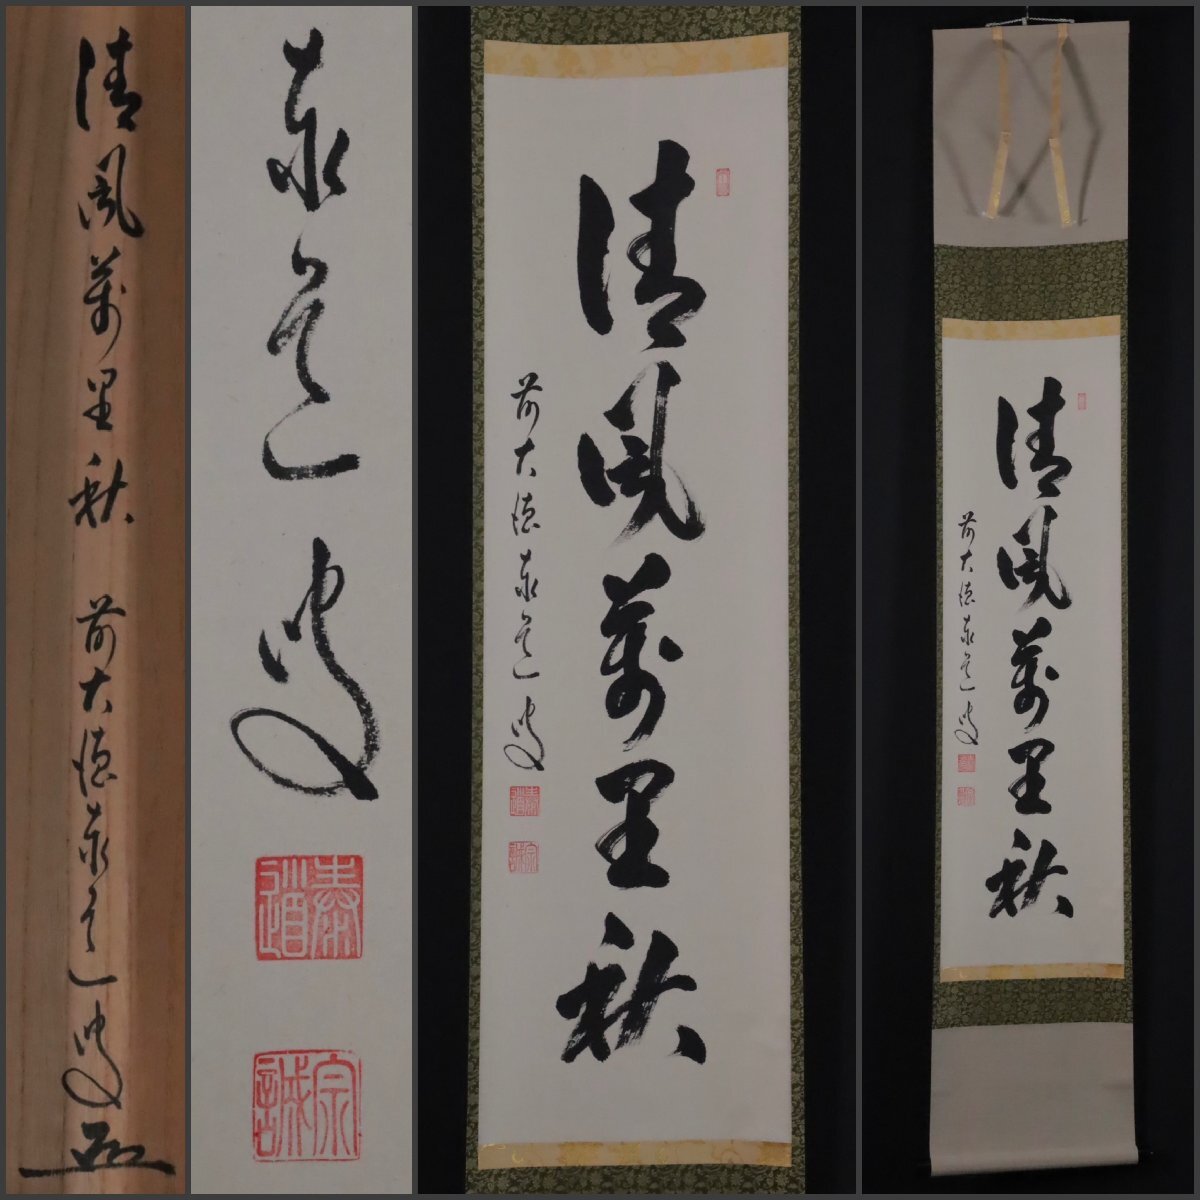 清風萬里秋 前大徳泰道叟
泰道叟
泰道
宗誠
清風萬里秋
前大徳泰道叟
泰道
宗誠
清風萬里秋
前大徳泰道叟